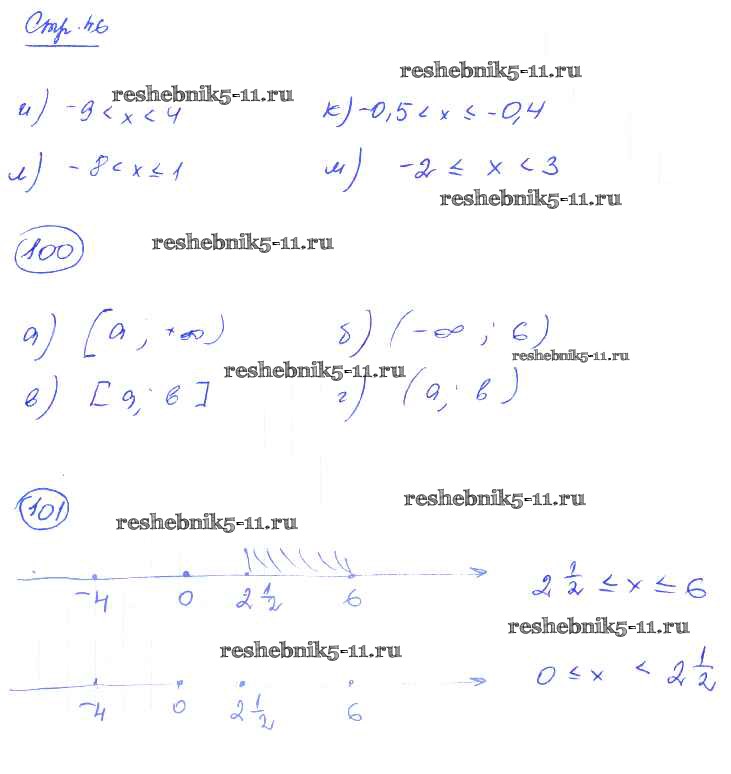 Стр. 46
reshebnik5-11.ru
reshebnik5-11.ru
и) -9 < x < 4 к) -0,5 < x ≤ -0,4
л) -8 < x ≤ 1 м) -2 ≤ x < 3
reshebnik5-11.ru
100 reshebnik5-11.ru
а) [a; +∞) б) (-∞; b)
reshebnik5-11.ru
reshebnik5-11.ru
в) [a; b] г) (a; b)
101 reshebnik5-11.ru
reshebnik5-11.ru
-4 0 2 1/2 6 2 1/2 ≤ x ≤ 6
reshebnik5-11.ru
reshebnik5-11.ru
-4 0 2 1/2 6 0 ≤ x < 2 1/2